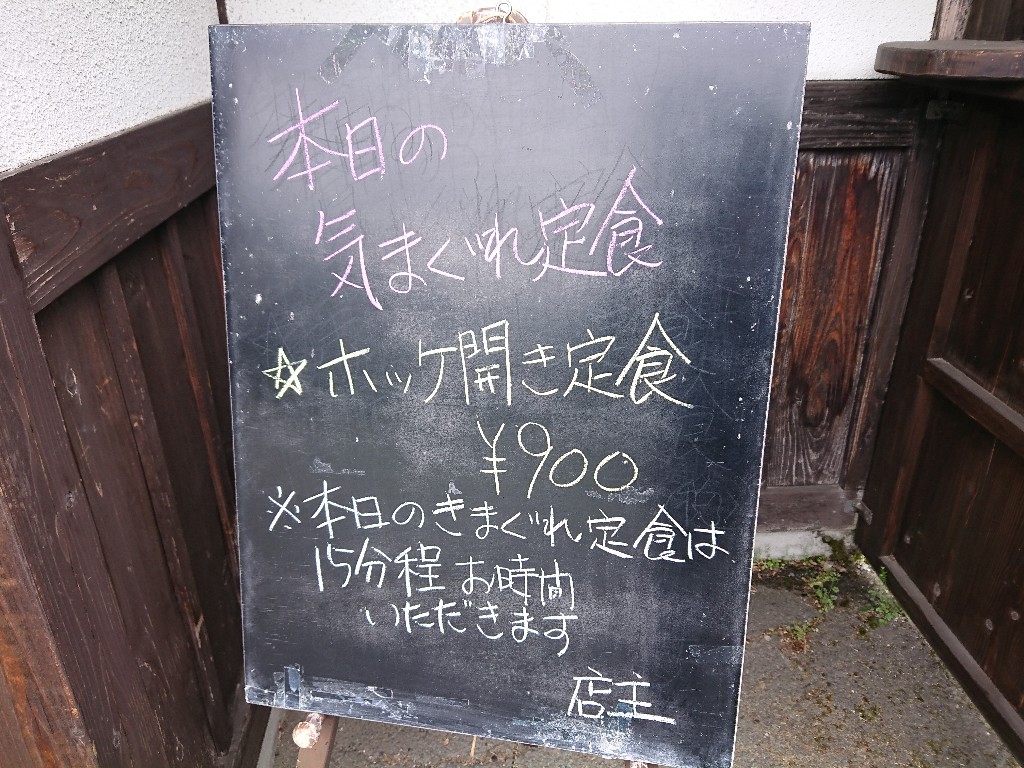 本日の
気まぐれ定食
☆ホッケ開き定食
¥900
※本日のきまぐれ定食は
15分程お時間
いただきます
店主